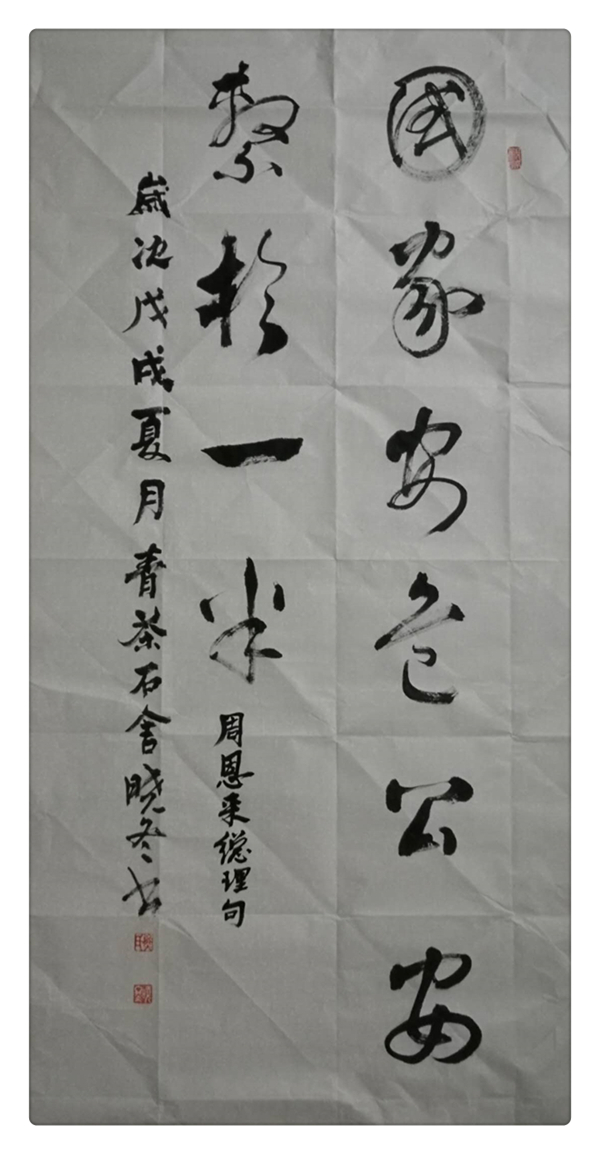 國家安危公安
繫於一半
周恩来總理句
歲次戊戌夏月青茶石舍晓冬书